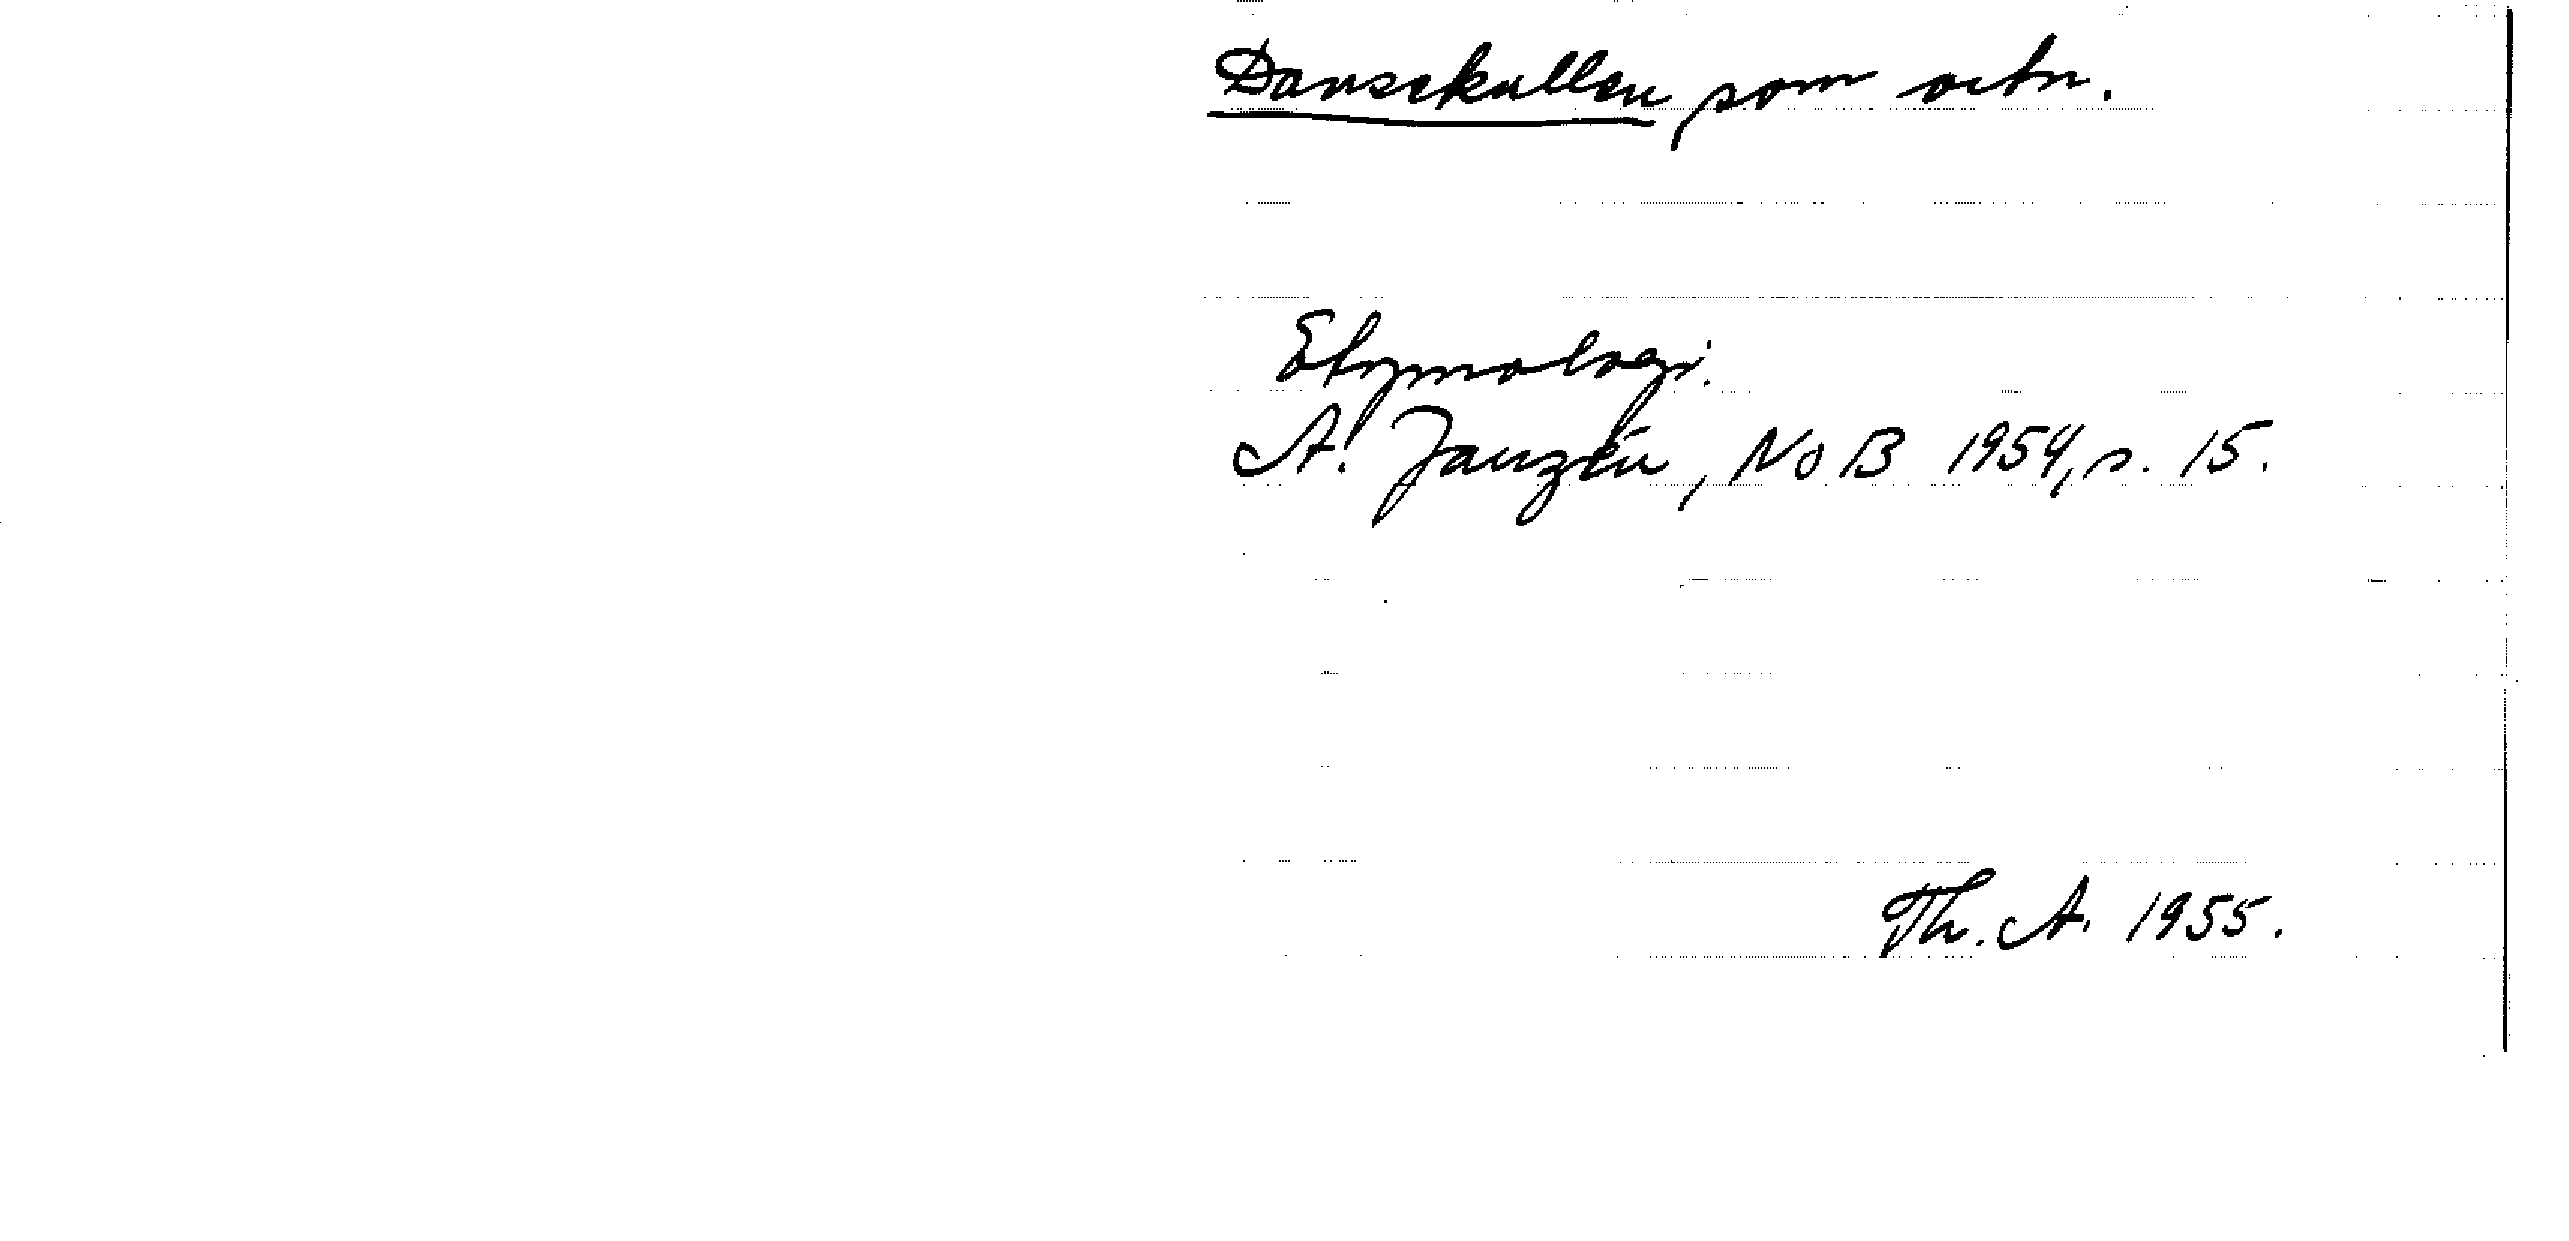 Dansekullen som ortn.
Etymologi.
A. Janzén, NoB 1954, s. 15.
Th. A. 1955.